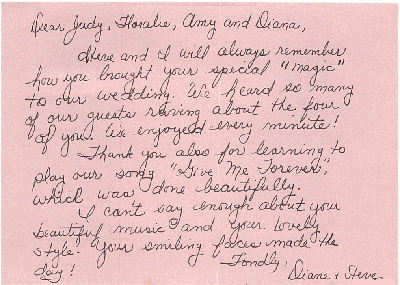 Dear Judy, Horatie, Amy and Diana,
Steve and I will always remember
how you brought your special "magic"
to our wedding. We heard so many
of our guests raving about the four
of you. We enjoyed every minute!
Thank you also for learning to
play our song "Give Me Forever",
which was done beautifully.
I can't say enough about your
beautiful music and your lovely
style. Your smiling faces made the
day!
Fondly,
Diane + Steve